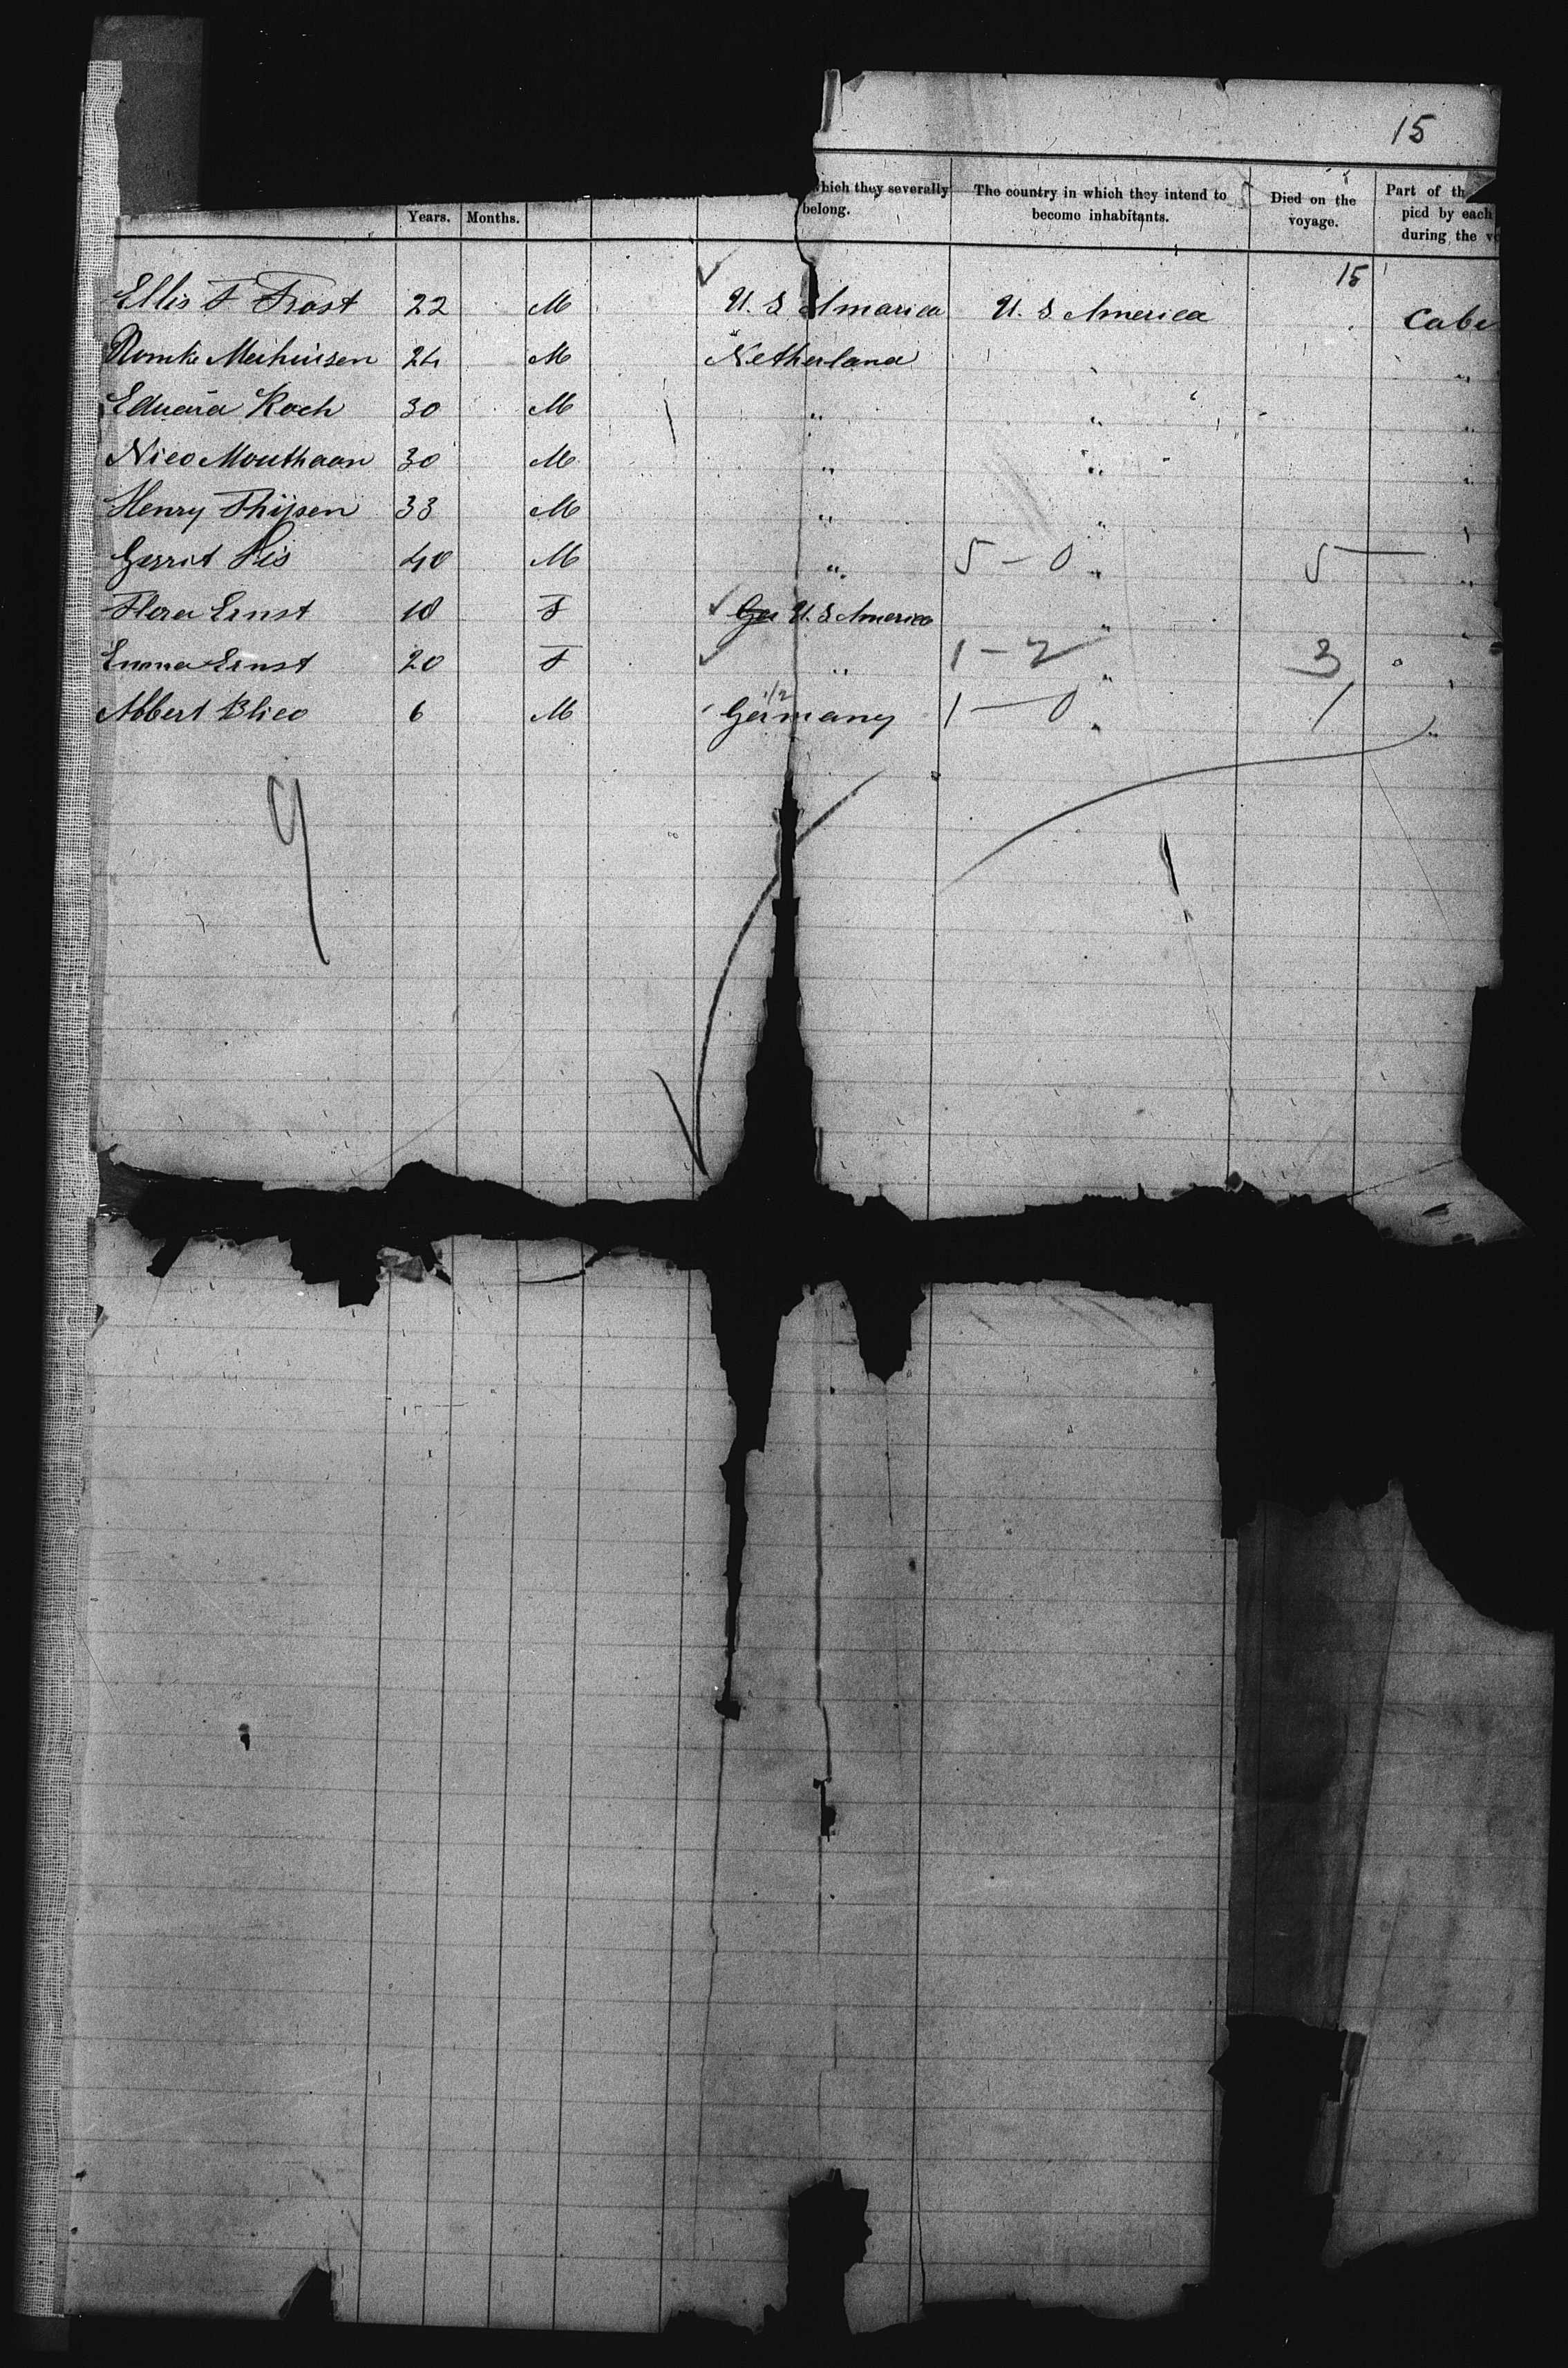 15
which they severally belong. The country in which they intend to become inhabitants. Died on the voyage. Part of th pied by each during the v
Years. Months.
15
Ellis F Frost 22 M U. S America U. S America Cabi
Meihuisen 24 M Netherland " "
Eduard Koch 30 M " " "
Nico Mouthaan 30 M " " "
Henry Thijsen 33 M " "
Gerrit 40 M " 5 - 0 " 5 — "
Flora Ernst 18 F Ger U. S America " "
Emma Ernst 20 F " 1 - 2 " 3
1/2
Albert Blico 6 M Germany 1 — 0 " 1 "
9